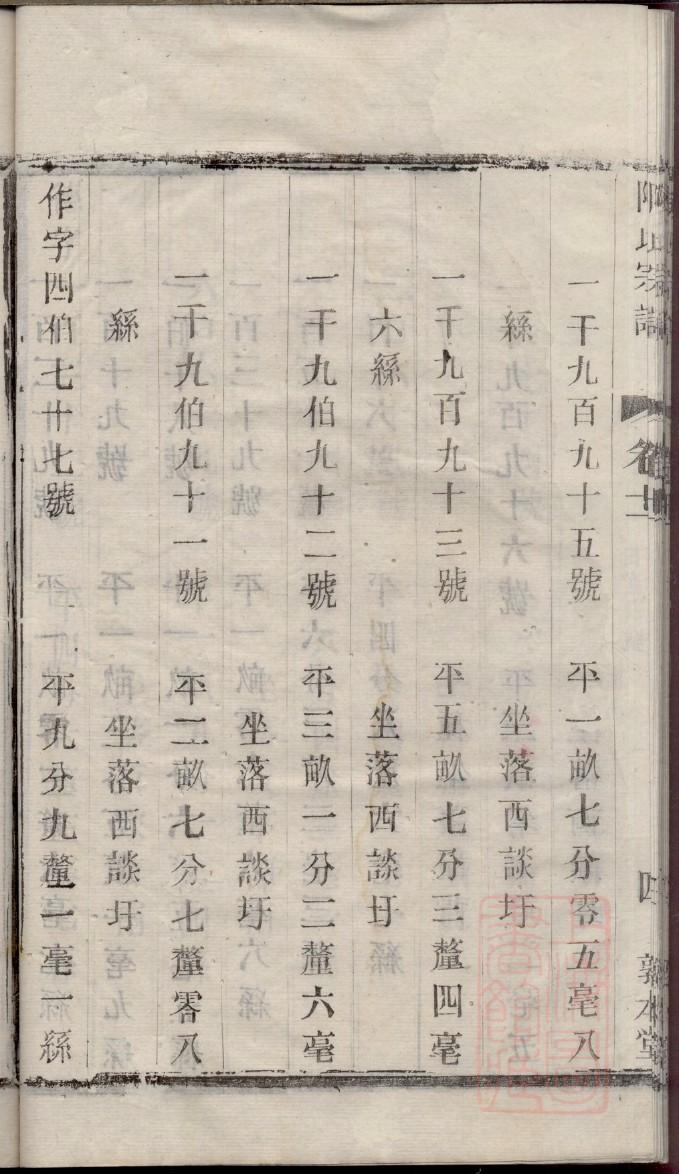 宗譜 卷十二 四 敦本堂
一千九百九十五號 平一畝七分零五毫八
絲 坐落西談圩
一千九百九十三號 平五畝七分三釐四毫
六絲 坐落西談圩
一千九伯九十二號 平三畝一分二釐六毫
坐落西談圩
一千九伯九十一號 平二畝七分七釐零八
絲 坐落西談圩
作字四伯七十七號 平九分九釐一毫一絲